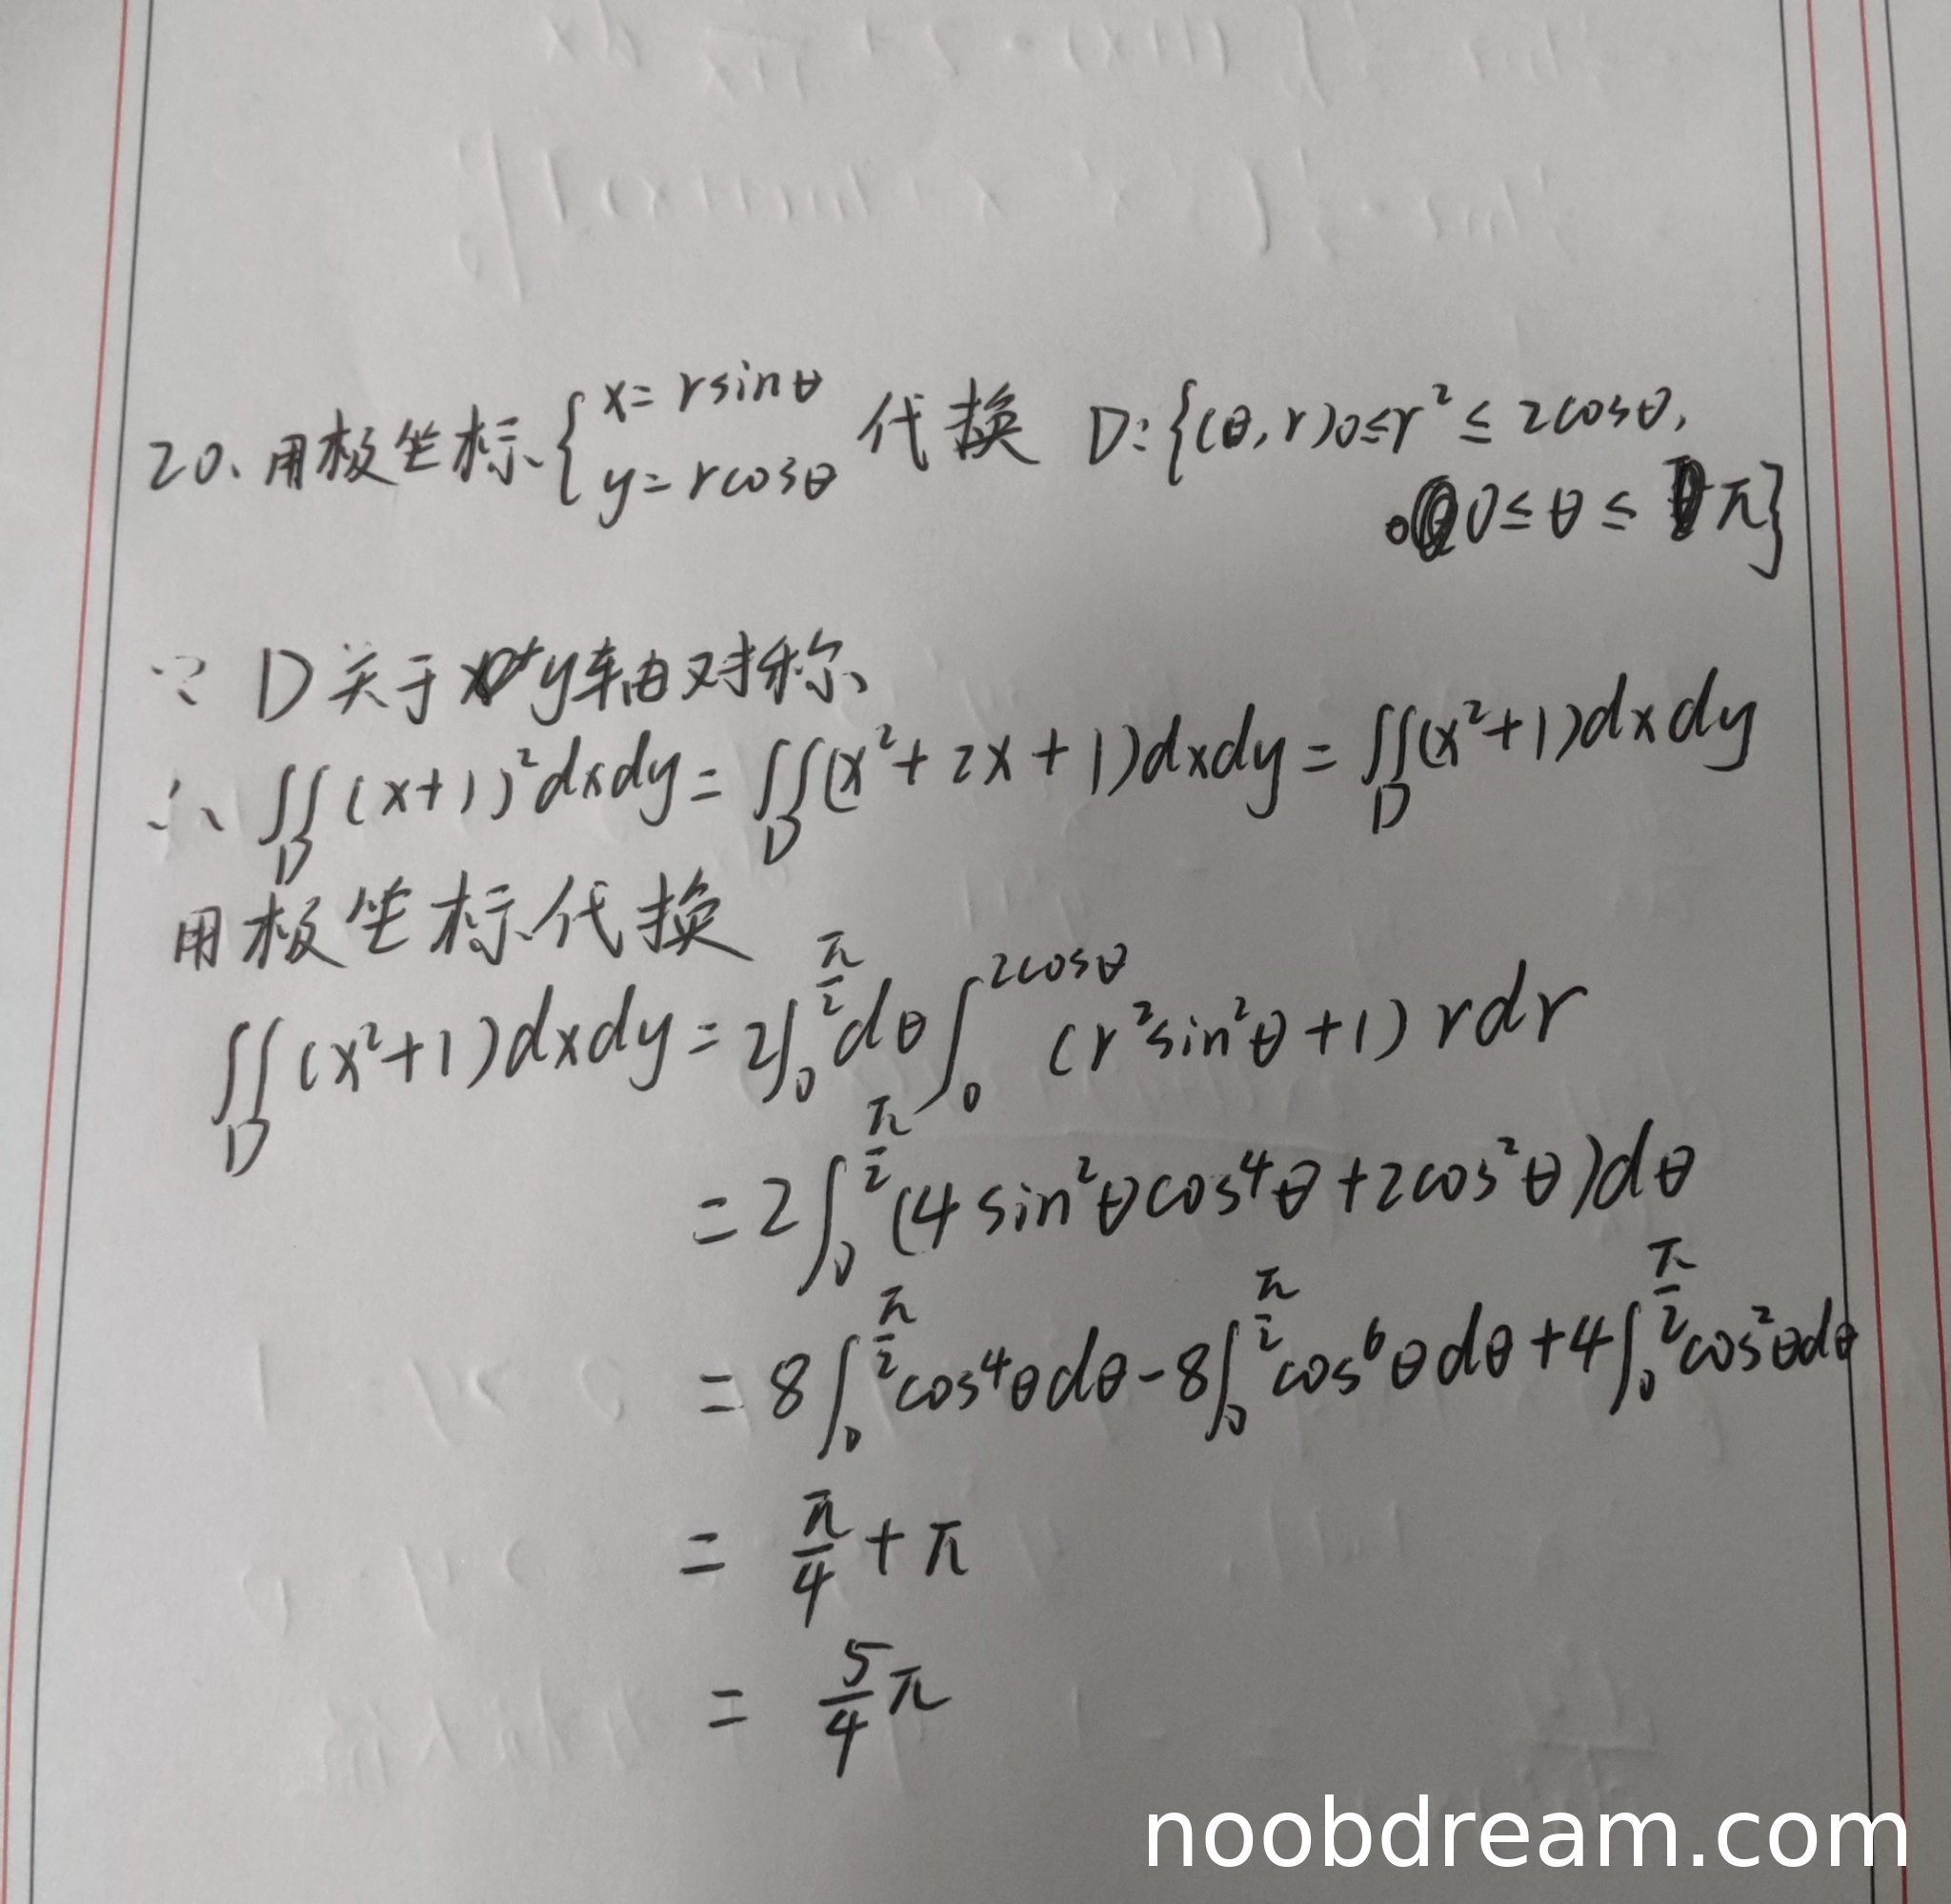 20. 用极坐标 { x = rsinθ 代换 D:{(θ,r)0≤r² ≤ 2cosθ,
y = rcosθ
0≤θ≤ π}
∵ D关于y轴由对称
∴ ∬_D (x+1)²dxdy = ∬_D (x²+2x+1)dxdy = ∬_D (x²+1)dxdy
用极坐标代换
∬_D (x²+1)dxdy = 2∫_0^{π/2} dθ ∫_0^{2cosθ} (r²sin²θ+1) rdr
= 2∫_0^{π/2} (4sin²θcos⁴θ+2cos²θ)dθ
= 8∫_0^{π/2} cos⁴θdθ - 8∫_0^{π/2} cos⁶θdθ + 4∫_0^{π/2} cos²θdθ
= π/4 + π
= 5/4 π
noobdream.com